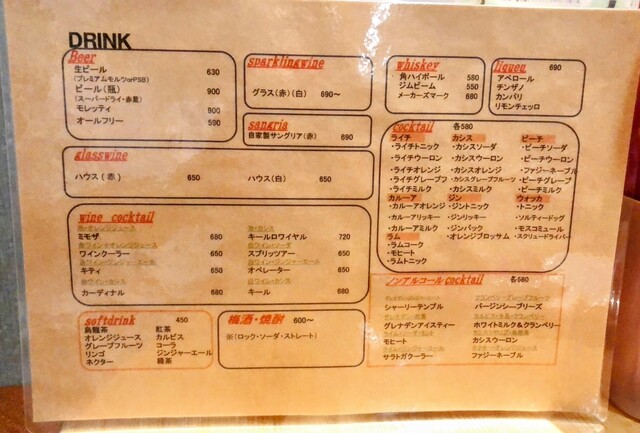 DRINK
Beer
生ビール 630
(プレミアムモルツorPSB)
ビール(瓶) 900
(スーパードライ・赤星)
モレッティ 900
オールフリー 590
sparklingwine
グラス(赤)(白) 690~
sangria
自家製サングリア(赤) 690
whiskey
角ハイボール 580
ジムビーム 550
メーカーズマーク 680
liqueu 690
アペロール
チンザノ
カンパリ
リモンチェッロ
glasswine
ハウス(赤) 650 ハウス(白) 650
wine cocktail
ミモザ 680
白ワイン+オレンジジュース
ワインクーラー 650
キティ 650
カーディナル 680
キールロワイヤル 720
白ワイン・ソーダ
スプリッツアー 650
白ワイン・ジンジャーエール
オペレーター 650
白ワイン・カシス
キール 680
cocktail 各580
ライチ カシス ピーチ
・ライチトニック ・カシスソーダ ・ピーチソーダ
・ライチウーロン ・カシスウーロン ・ピーチウーロン
・ライチオレンジ ・カシスオレンジ ・ファジーネーブル
・ライチグレープフ ・カシスグレープフルーツ ・ピーチグレープ
・ライチミルク ・カシスミルク ・ピーチミルク
カルーア ジン ウォッカ
・カルーアオレンジ ・ジントニック ・トニック
・カルーアリッキー ・ジンリッキー ・ソルティードッグ
・カルーアミルク ・ジンバック ・モスコミュール
ラム ・オレンジブロッサム ・スクリュードライバー
・ラムコーク
・モヒート
・ラムトニック
softdrink 450
烏龍茶 紅茶
オレンジジュース カルピス
グレープフルーツ コーラ
リンゴ ジンジャーエール
ネクター 緑茶
梅酒・焼酎 600~
※(ロック・ソーダ・ストレート)
ノンアルコールcocktail 各580
シャーリーテンプル
グレナデンアイスティー
モヒート
サラトガクーラー
バージンシーブリーズ
ホワイトミルク&クランベリー
カシスウーロン
ファジーネーブル